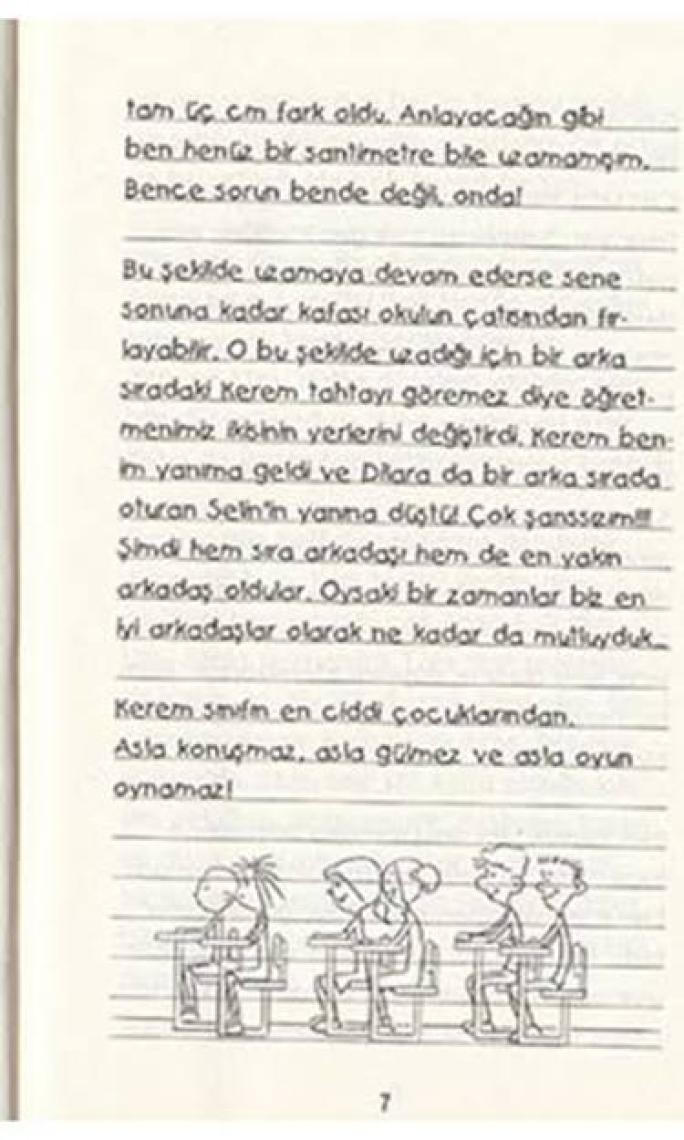 tam üç cm fark oldu. Anlayacağın gibi
ben henüz bir santimetre bile uzamamışım.
Bence sorun bende değil, onda!
Bu şekilde uzamaya devam ederse sene
sonuna kadar kafası okulun çatısından fır-
layabilir. O bu şekilde uzadığı için bir arka
sıradaki Kerem tahtayı göremez diye öğret-
menimiz ikisinin yerlerini değiştirdi. Kerem ben-
im yanıma geldi ve Dilara da bir arka sırada
oturan Selin'in yanına düştü! Çok şanssızım!!!
Şimdi hem sıra arkadaşı hem de en yakın
arkadaş oldular. Oysaki bir zamanlar biz en
iyi arkadaşlar olarak ne kadar da mutluyduk...
Kerem sınıfın en ciddi çocuklarından.
Asla konuşmaz, asla gülmez ve asla oyun
oynamaz!
7